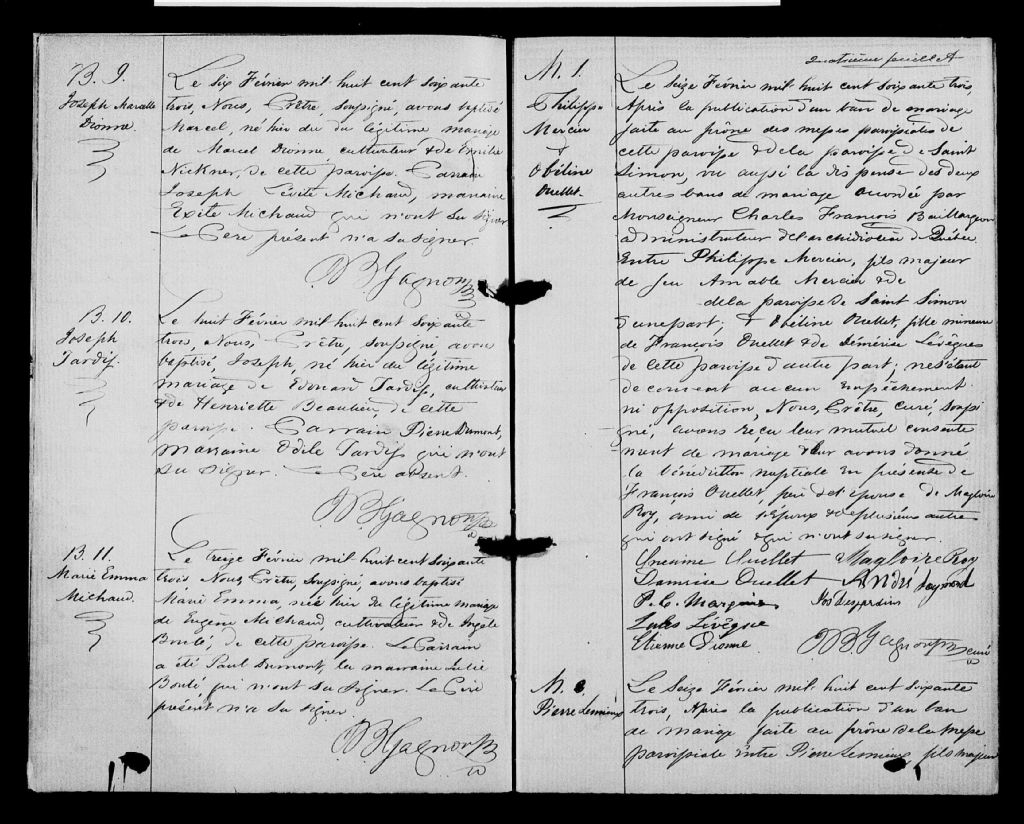 B. 9.
Joseph Marcelle
Dionne.
Le six Février mil huit cent soixante
trois, Nous, Prêtre, soussigné, avons baptisé
Marcel, né hier du du légitime mariage
de Marcel Dionne cultivateur & de Emilie
Nickner, de cette paroisse. Parrain
Joseph Lévite Michaud, marraine
Exite Michaud qui n'ont su signer
Le Père présent n'a su signer
B Gagnon Ptr
B. 10.
Joseph
Tardif.
Le huit Février mil huit cent soixante
trois, Nous, Prêtre, soussigné, avons
baptisé, Joseph, né hier du légitime
mariage de Edouard Tardif, cultivateur
& de Henriette Beaulieu, de cette
paroisse. Parrain Pierre Dumont,
marraine Odile Tardif qui n'ont
su signer. Le Père absent.
B Gagnon Ptr
B. 11.
Marie Emma
Michaud.
Le treize Février mil huit cent soixante
trois, Nous Prêtre, soussigné, avons baptisé
Marie Emma, née hier du légitime mariage
de Eugène Michaud cultivateur & de Angèle
Boulé, de cette paroisse. Le Parrain
a été Paul Dumont, la marraine Julie
Boulé, qui n'ont su signer. Le Père
présent n'a su signer
B Gagnon Ptr
Quatrième feuillet
M. 1.
Philippe
Mercier
&
Obéline
Ouellet.
Le seize Février mil huit cent soixante trois,
Après la publication d'un ban de mariage
faite au prône des messes paroissiales de
cette paroisse & de la paroisse de Saint
Simon, vu aussi la dispense des deux
autres bans de mariage accordée par
Monseigneur Charles François Baillargeon
administrateur de l'archidiocèse de Québec.
Entre Philippe Mercier, fils majeur
de feu Amable Mercier & de
de la paroisse de Saint Simon
d'une part; & Obéline Ouellet, fille mineure
de François Ouellet & de Démérise Lévêques
de cette paroisse d'autre part; ne s'étant
découvert aucun empêchement
ni opposition, Nous, Prêtre, curé, soussi
gné, avons reçu leur mutuel consente
ment de mariage & leur avons donné
la bénédiction nuptiale en présence de
François Ouellet, père de l'épouse de Magloire
Roy, ami de l'époux & de plusieurs autres
qui ont signé & qui n'ont su signer.
Ouellet Magloire Roy
Damise Ouellet André Raymond
P. C. Marquis Jos Desjardins
Jules Lévêque
Etienne Dionne B Gagnon Ptr curé
M. 2.
Pierre Lemieux
Le Seize Février mil huit cent soixante
trois, Après la publication d'un ban
de mariage faite au prône de la messe
paroissiale entre Pierre Lemieux, fils majeur